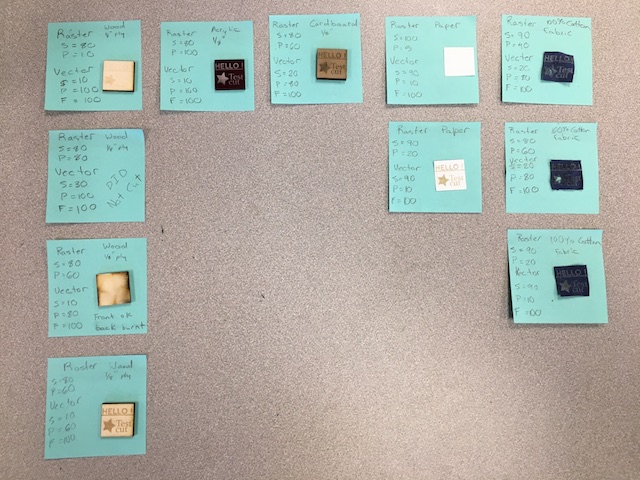 Raster Wood
S = 80
P = 10
Vector
S = 10
P = 100
F = 100
Raster Acrylic
S = 80 1/8"
P = 100
Vector
S = 10
P = 100
F = 100
HELLO !
Test
cut
Raster Cardboard
S = 80 1/8"
P = 60
Vector
S = 20
P = 80
F = 100
HELLO !
Test
cut
Raster Paper
S = 100
Vector
S = 90
P = 10
F = 100
Raster Cotton
S = 90 Fabric
P = 40
Vector
S = 20
F = 100
HELLO !
Test
cut
Raster Wood
S = 80 1/8" ply
P = 80
Vector
S = 30
P = 100
F = 100
DID
Not Cut
Raster Paper
S = 90
P = 20
Vector
S = 90
P = 10
F = 100
HELLO !
Test
cut
Raster Cotton
S = 80 Fabric
P = 60
Vector
P = 80
F = 100
Raster Wood
S = 80 1/8" ply
P = 60
Vector
S = 10
P = 80
F = 100
Front ok
back burnt
Raster 100% Cotton
S = 90 Fabric
P = 20
Vector
S = 90
P = 10
F = 100
HELLO !
Test
cut
Raster Wood
S = 80 1/8" ply
P = 60
Vector
S = 10
P = 60
F = 100
HELLO !
Test
cut